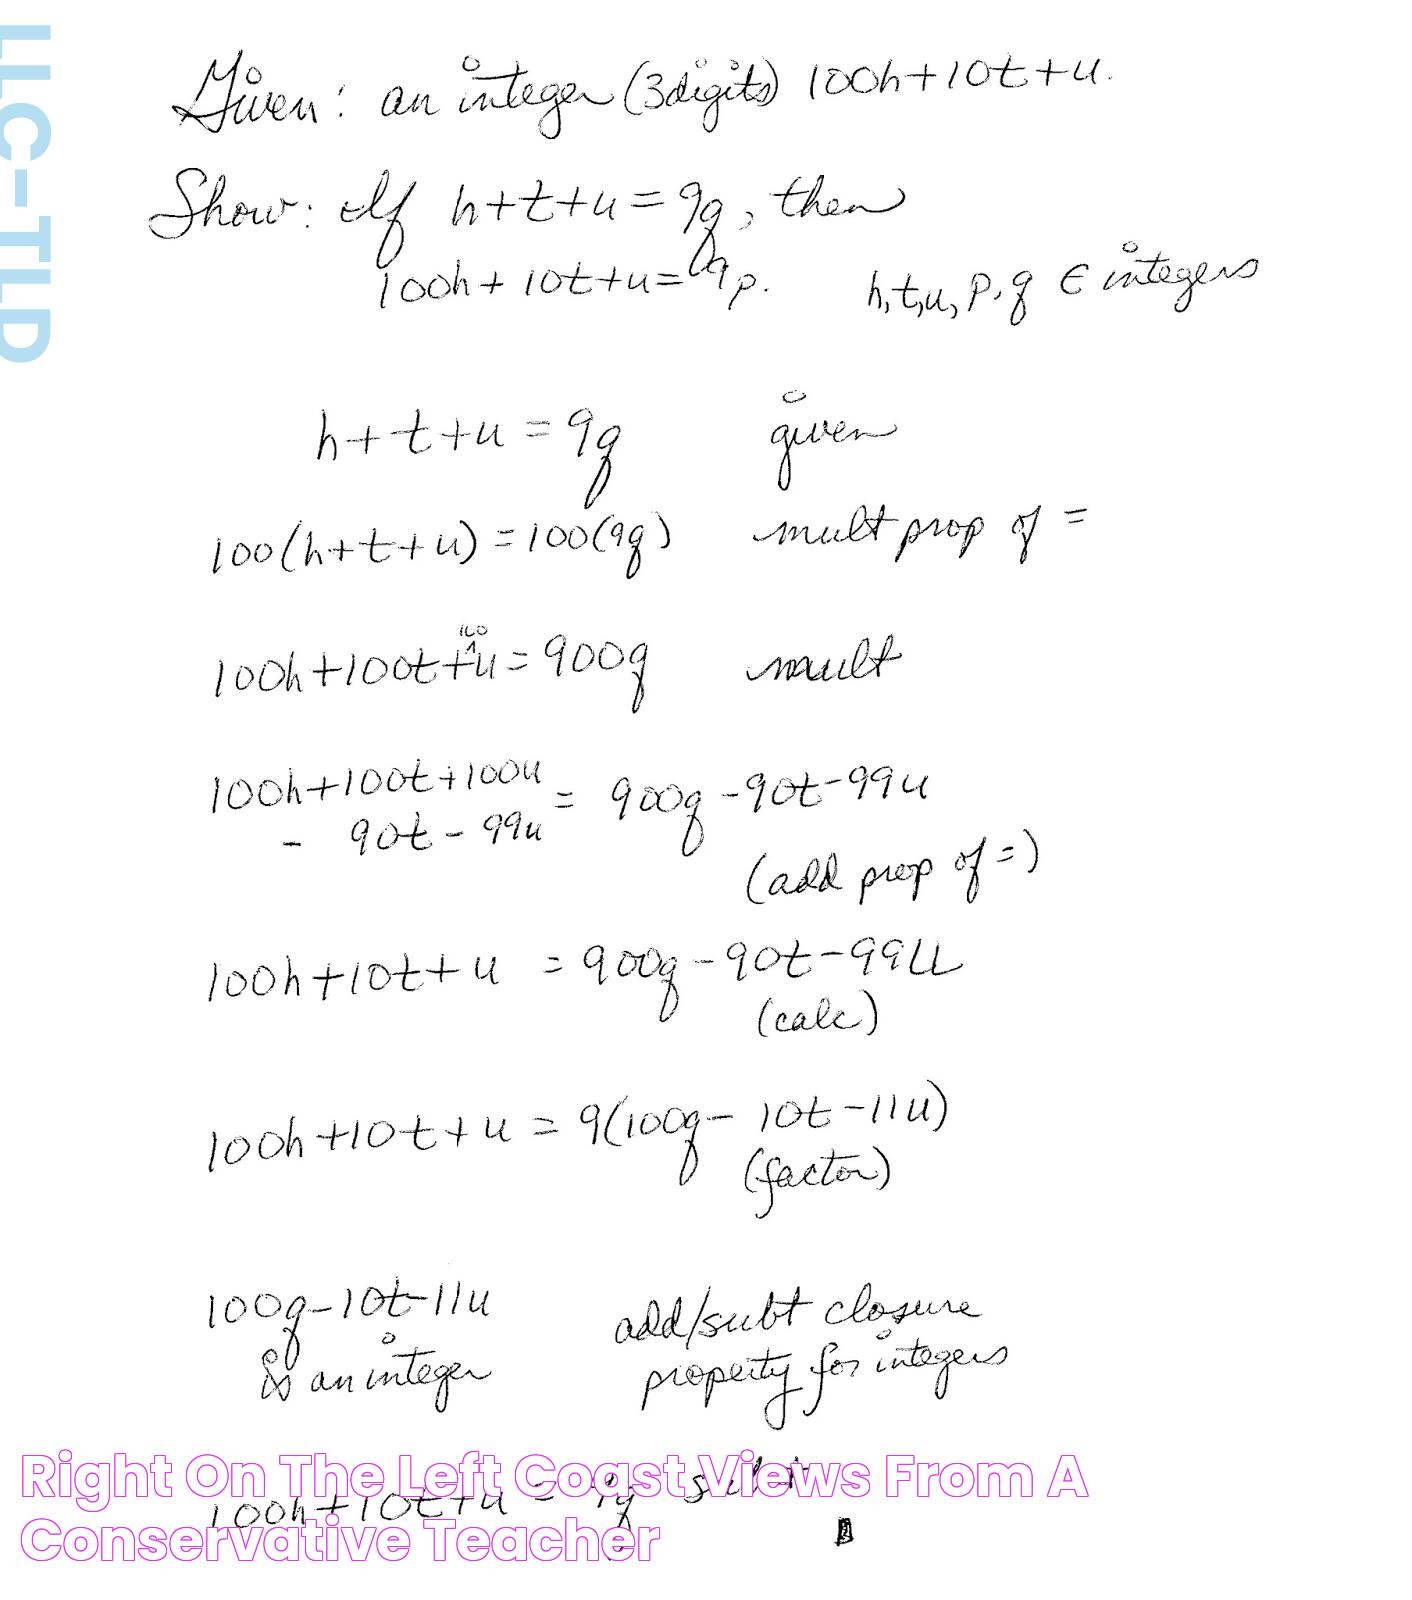 LLC-TLD
Given: an integer (3 digits) 100h+10t+u.
Show: If h+t+u=9q, then
100h+10t+u=9p. h,t,u,p,q ∈ integers
h+t+u=9q given
100(h+t+u)=100(9q) mult prop of =
100
100h+100t+^u=900q mult
100h+100t+100u = 900q-90t-99u
- 90t-99u
(add prop of =)
100h+10t+u =900q-90t-99u
(calc)
100h+10t+u = 9(100q-10t-11u)
(factor)
100q-10t-11u add/subt closure
is an integer property for integers
Right On The Left Coast Views From A
100h+10t+u =
Conservative Teacher